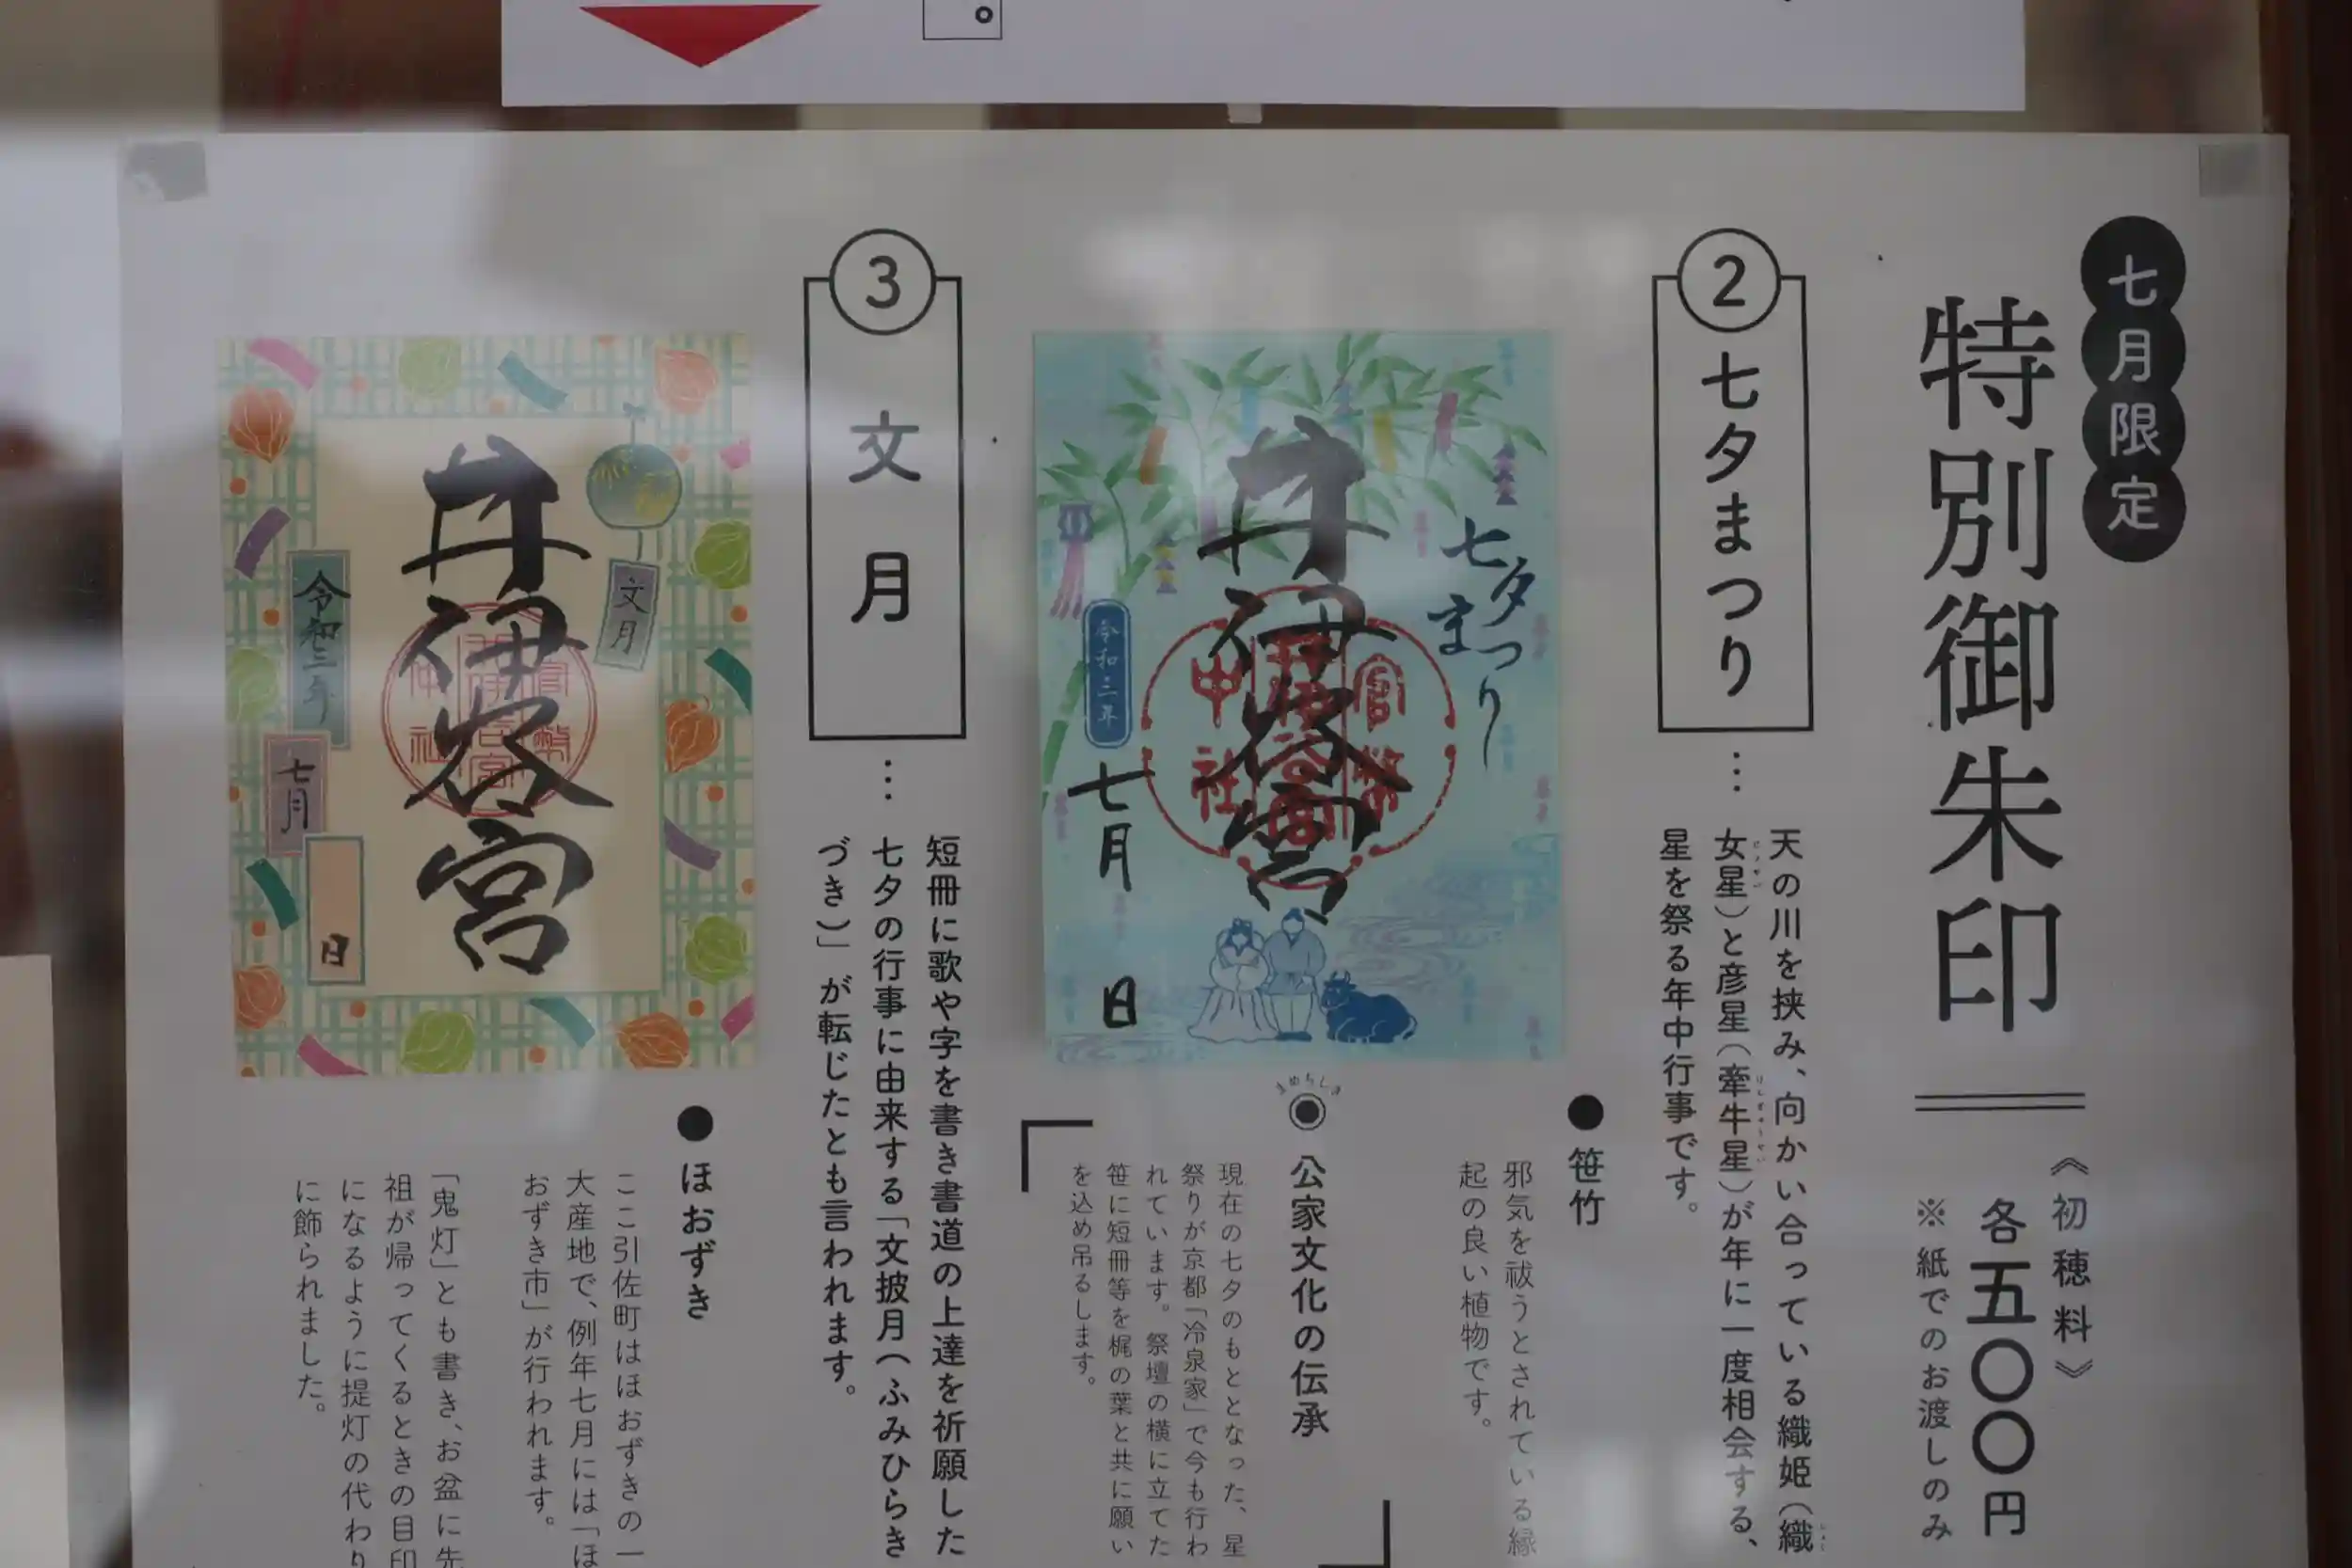 七月限定
特別御朱印
《初穂料》
各五〇〇円
※紙でのお渡しのみ
② 七夕まつり
…
天の川を挟み、向かい合っている織姫(織
女星)と彦星(牽牛星)が年に一度相会する、
星を祭る年中行事です。
七夕
まつり
井伊谷宮
官幣
井伊谷宮
中社
令和三年
七月
日
●笹竹
邪気を祓うとされている縁
起の良い植物です。
まめちしき
公家文化の伝承
現在の七夕のもととなった、星
祭りが京都「冷泉家」で今も行わ
れています。祭壇の横に立てた
笹に短冊等を梶の葉と共に願い
を込め吊るします。
③ 文月
…
短冊に歌や字を書き書道の上達を祈願した
七夕の行事に由来する「文披月(ふみひらき
づき)」が転じたとも言われます。
文月
井伊谷宮
官幣
井伊谷宮
中社
令和三年
七月
日
●ほおずき
ここ引佐町はほおずきの一
大産地で、例年七月には「ほ
おずき市」が行われます。
「鬼灯」とも書き、お盆に先
祖が帰ってくるときの目印
になるように提灯の代わり
に飾られました。